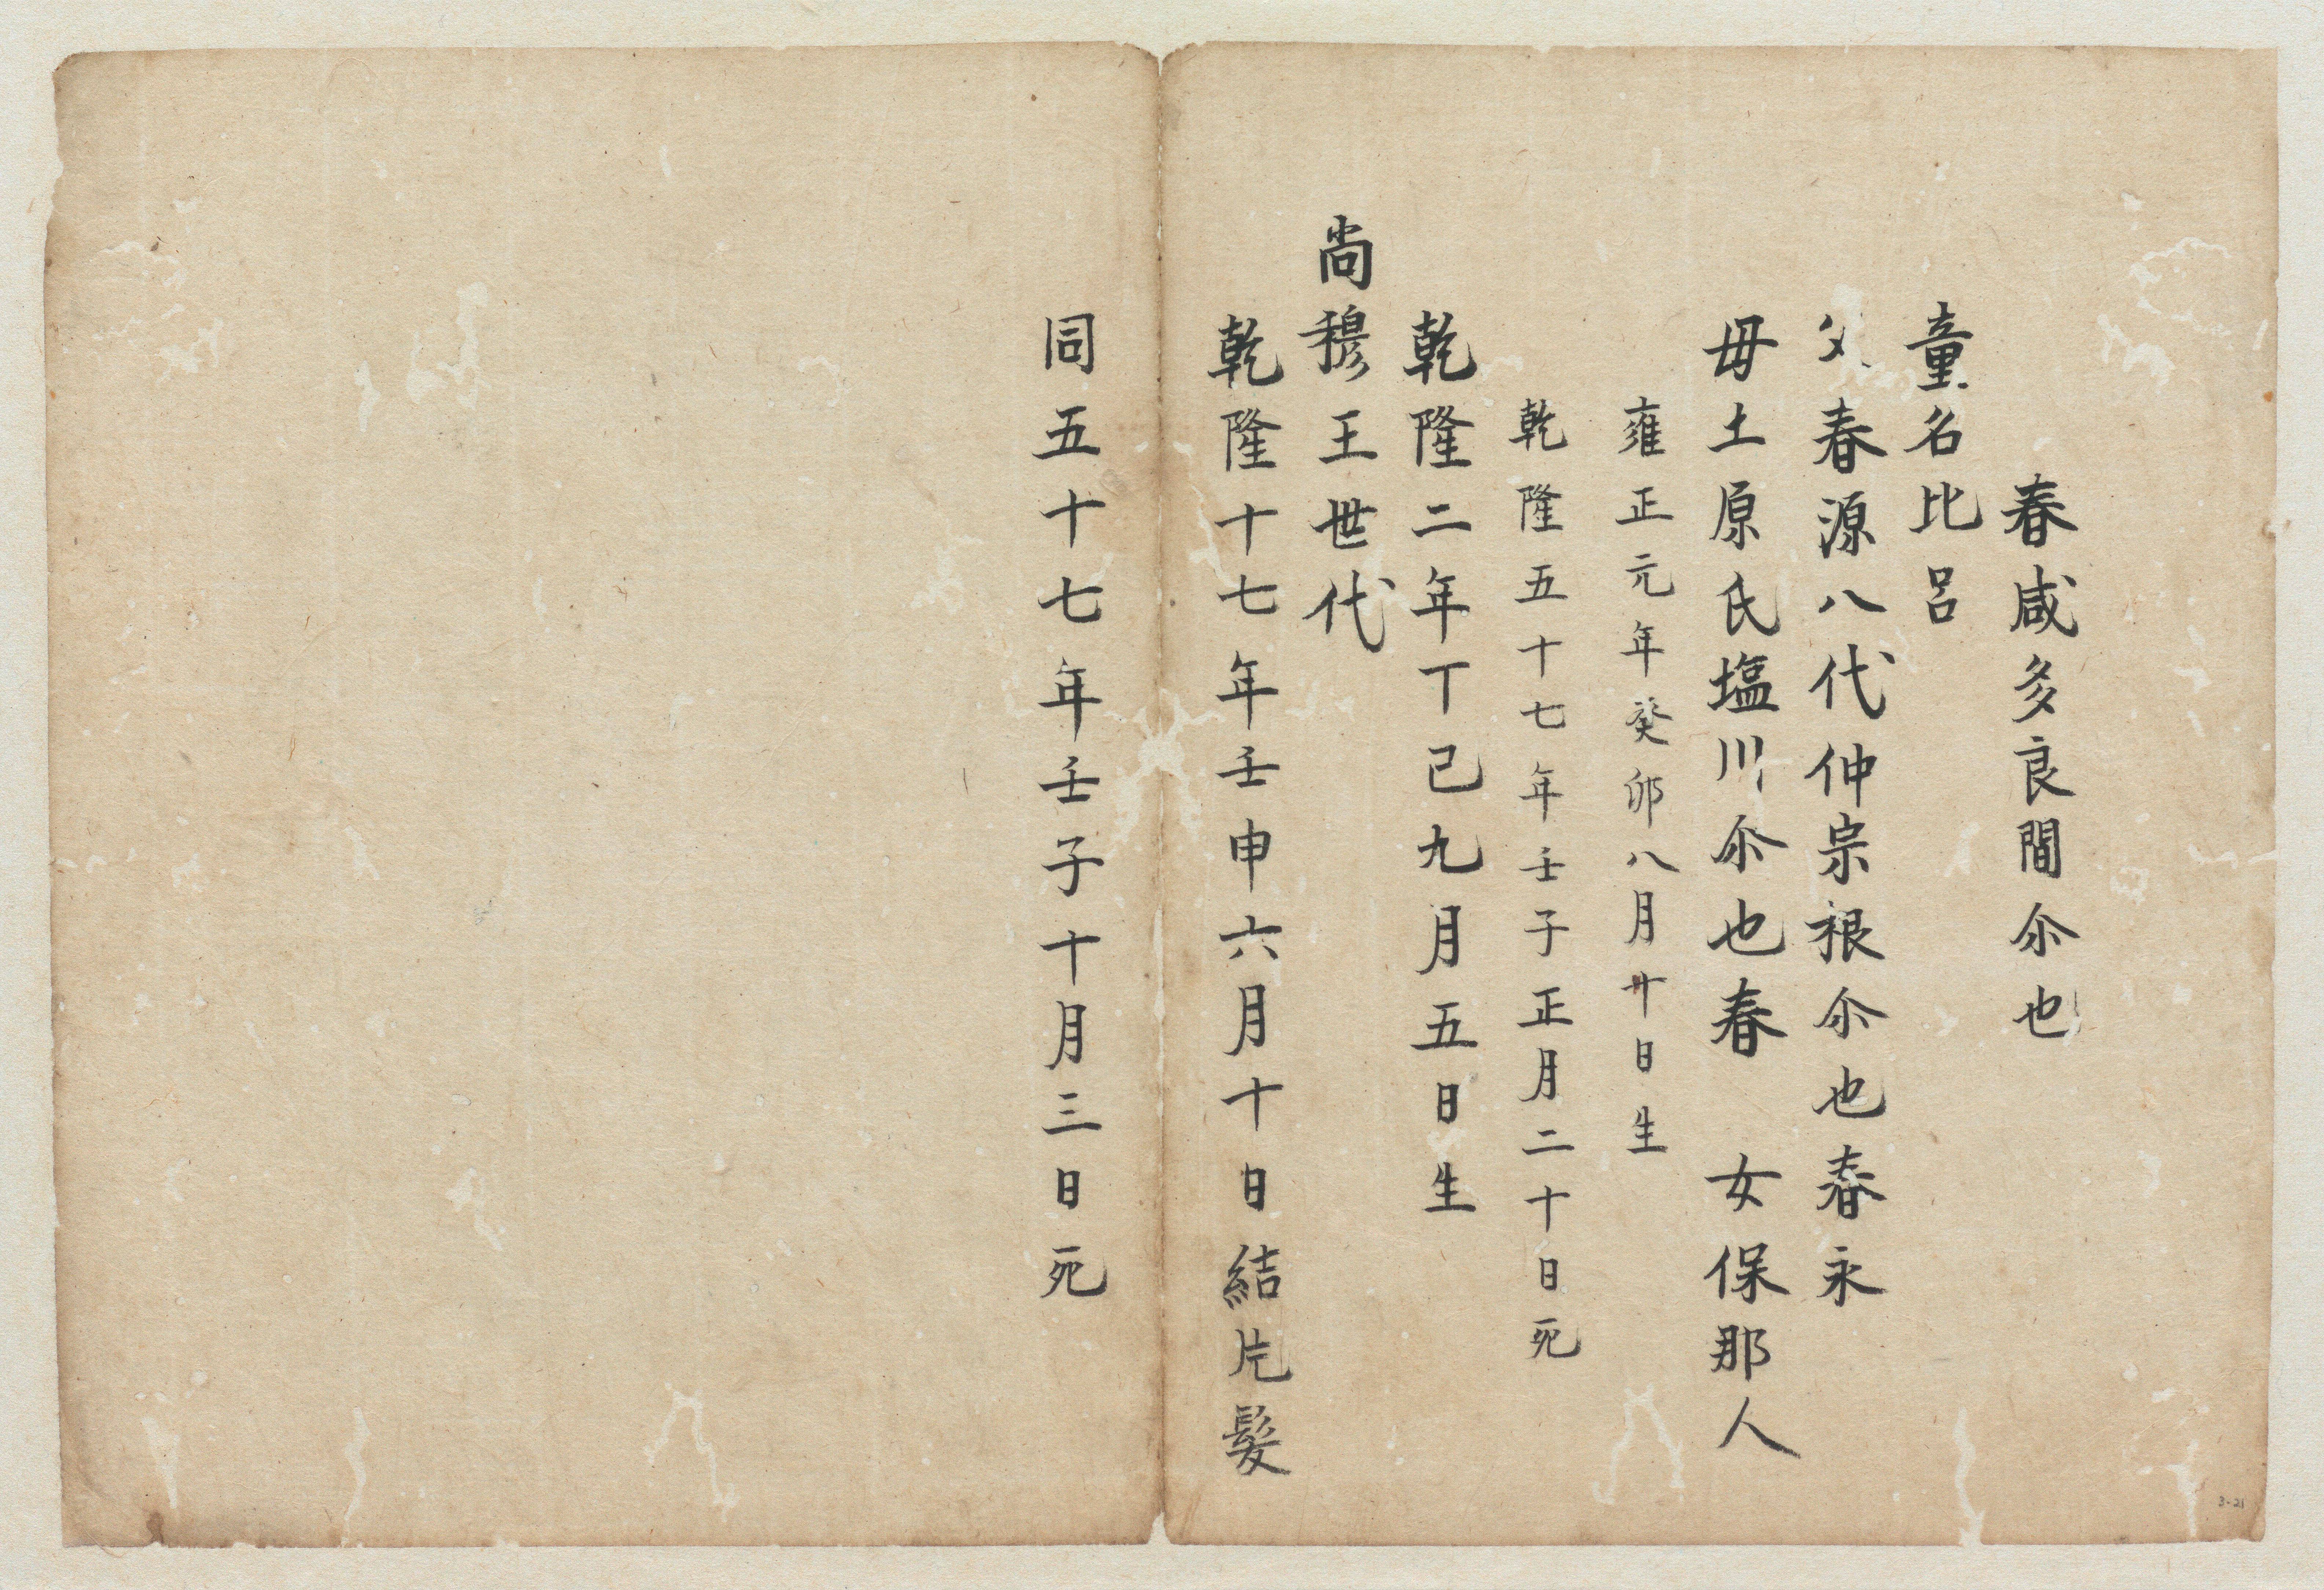 春咸多良間尒也
童名比呂
父春源八代仲宗根尒也春永
母土原氏塩川尒也春　女保那人
雍正元年癸卯八月廿日生
乾隆五十七年壬子正月二十日死
乾隆二年丁巳九月五日生
尚穆王世代
乾隆十七年壬申六月十日結片髪
同五十七年壬子十月三日死
3-21